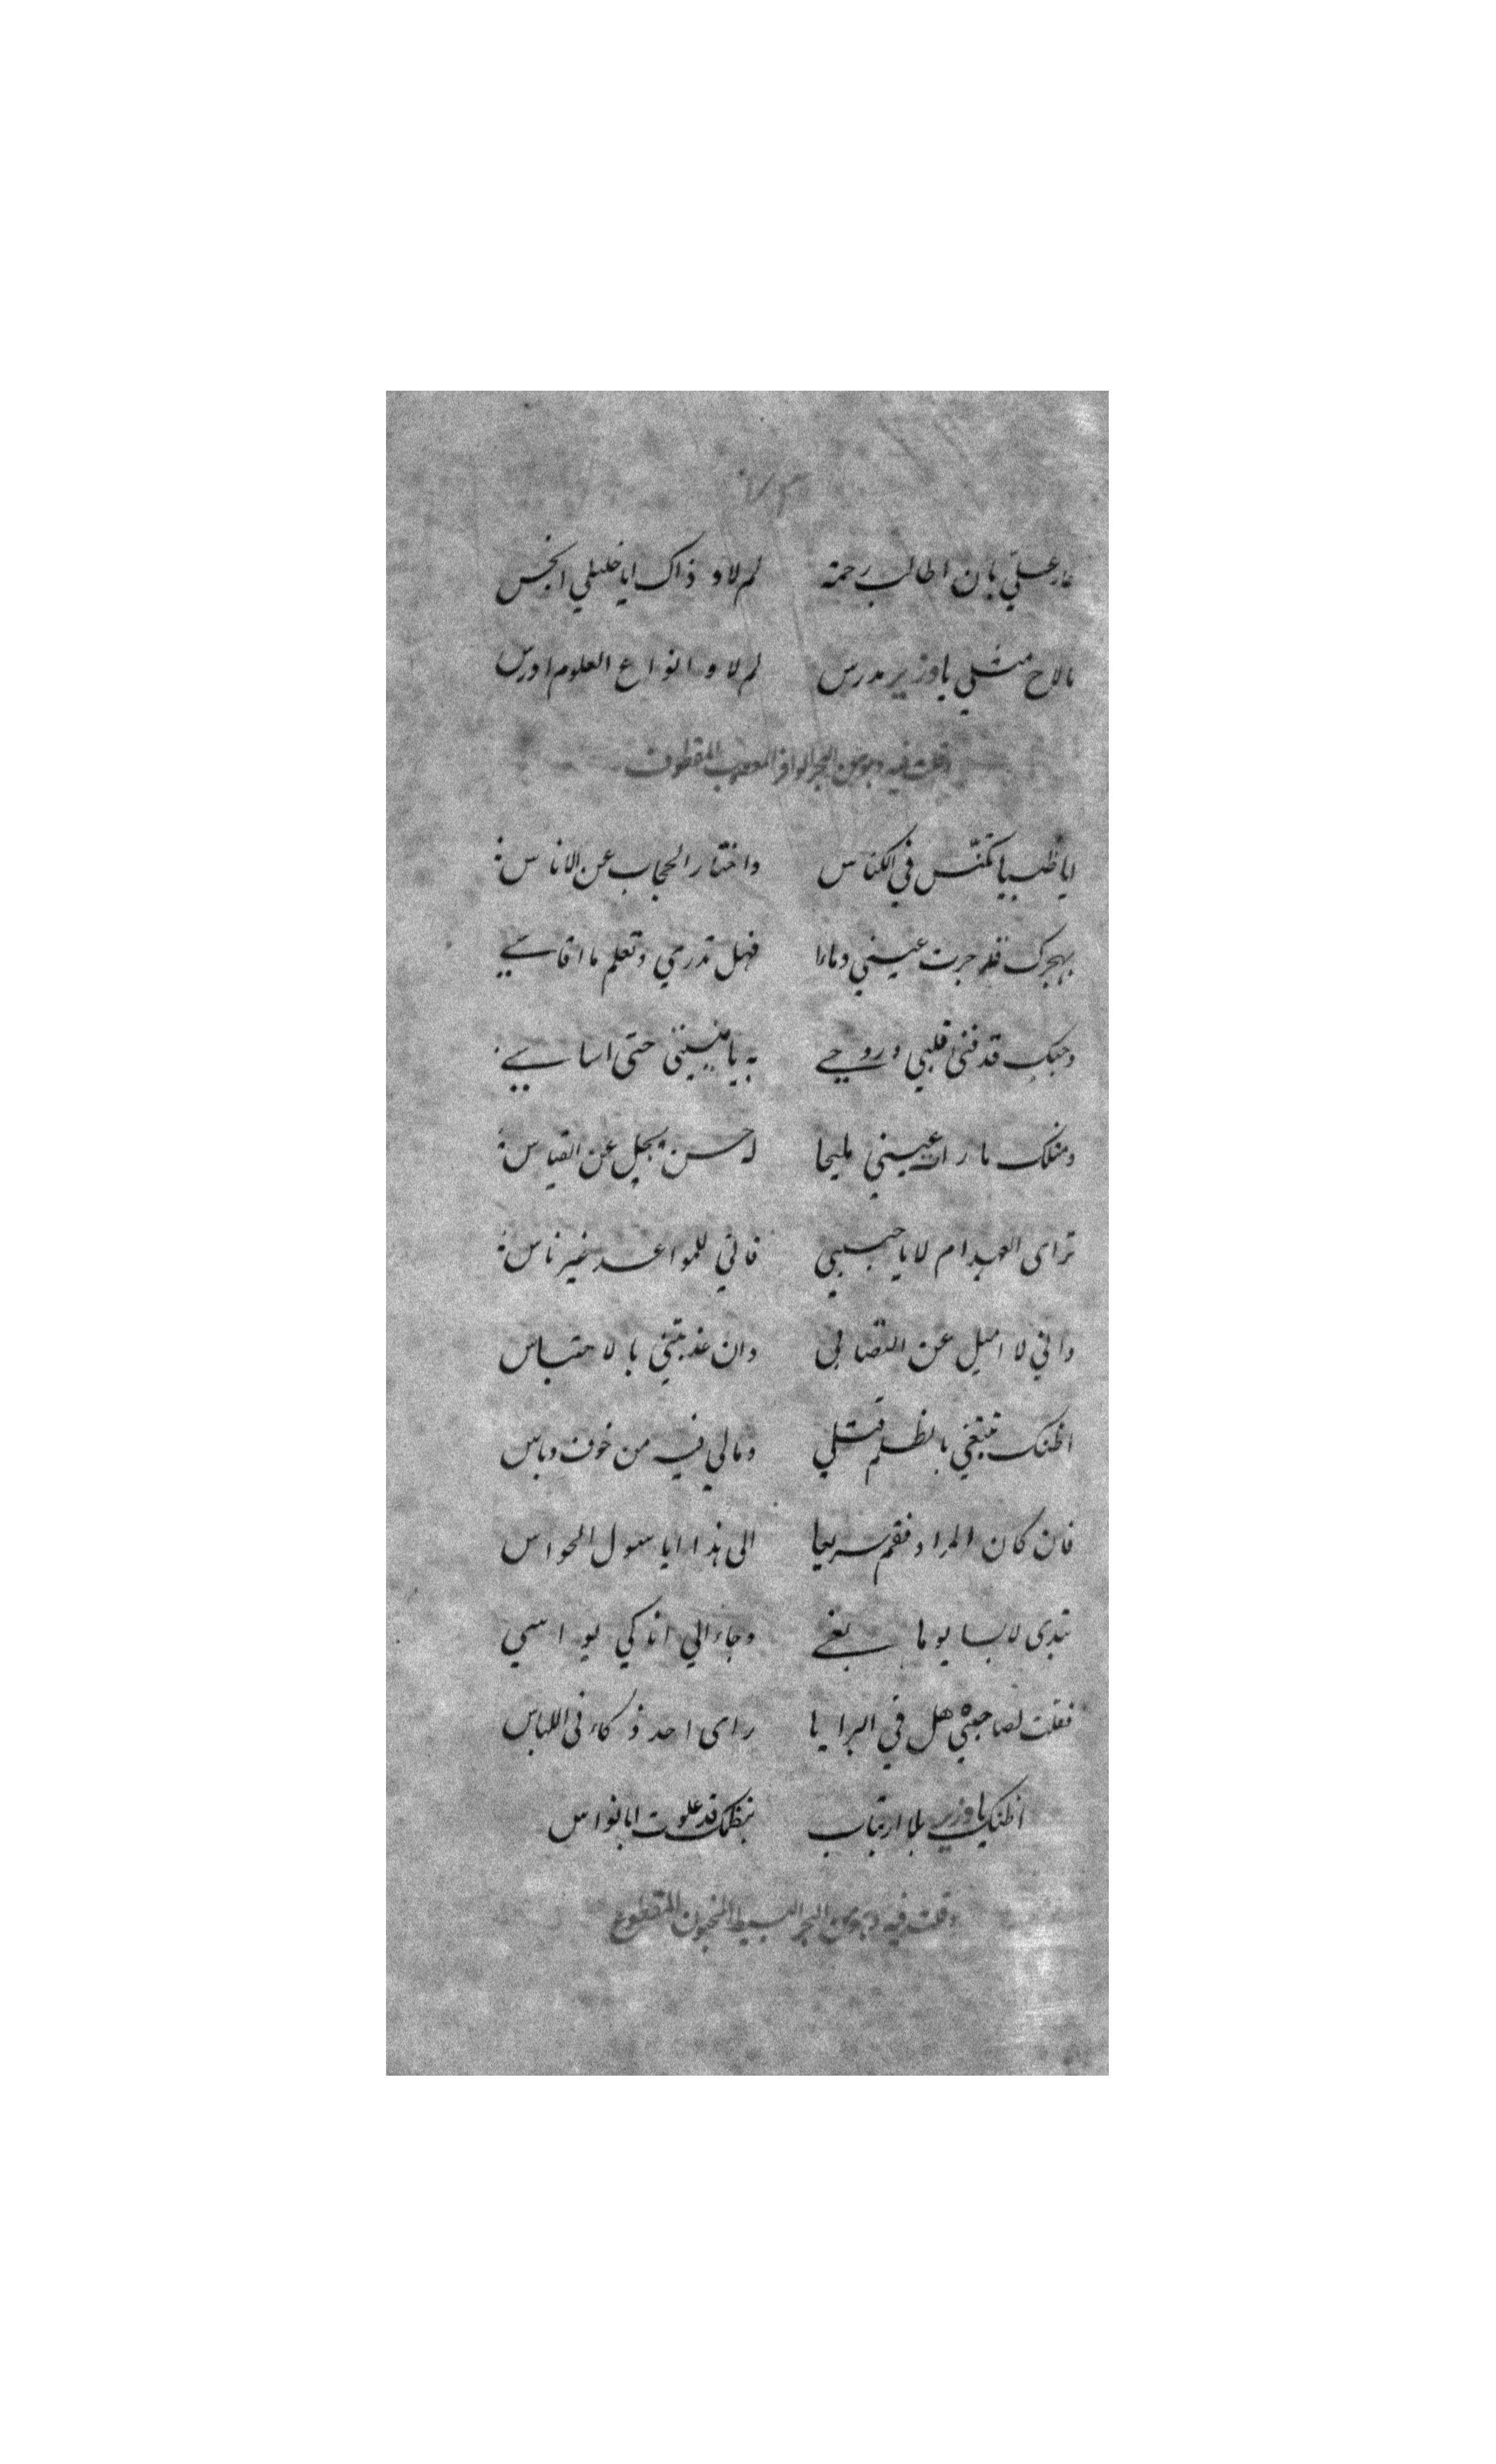 عار علىّ بان اطالب رحمة لم لا و ذاك ايا خليلي انجس
مالاح مثلي يا وزير مدرس لم لا و انواع العلوم ادرس
وقلت فيه وهو من البحر الوافر المعصوب المقطوف
ايا ظبيا تكنّس في الكناس واختار الحجاب عن الاناس
بهجرك قد جرت عيني دماءا فهل تدري وتعلم ما اقاسي
وحبك قد فنى قلبي و روحي به يا منيتي حتى اساسي
ومثلك ما رات عيني مليحا له حسن يجل عن القياس
تراى العهد ام لا يا حبيبي فاني للمواعد غير ناس
واني لا اميل عن التصابي وان عذبتني بالاحتباس
اظنك تبتغي بالظلم قتلي ومالي فيه من خوف وباس
فان كان المراد فقم سريعا الى هذا ايا سول الحواس
تبدى لابسا يوما وجاء الي اذ كي يواسي
فقلت لصاحبي هل في البرايا راى احد ذكاء في اللباس
اظنك يا وزير بلا ارتياب بنظمك قد علوت ابا نواس
وقلت فيه وهو من البحر البسيط المخبون المقطوع